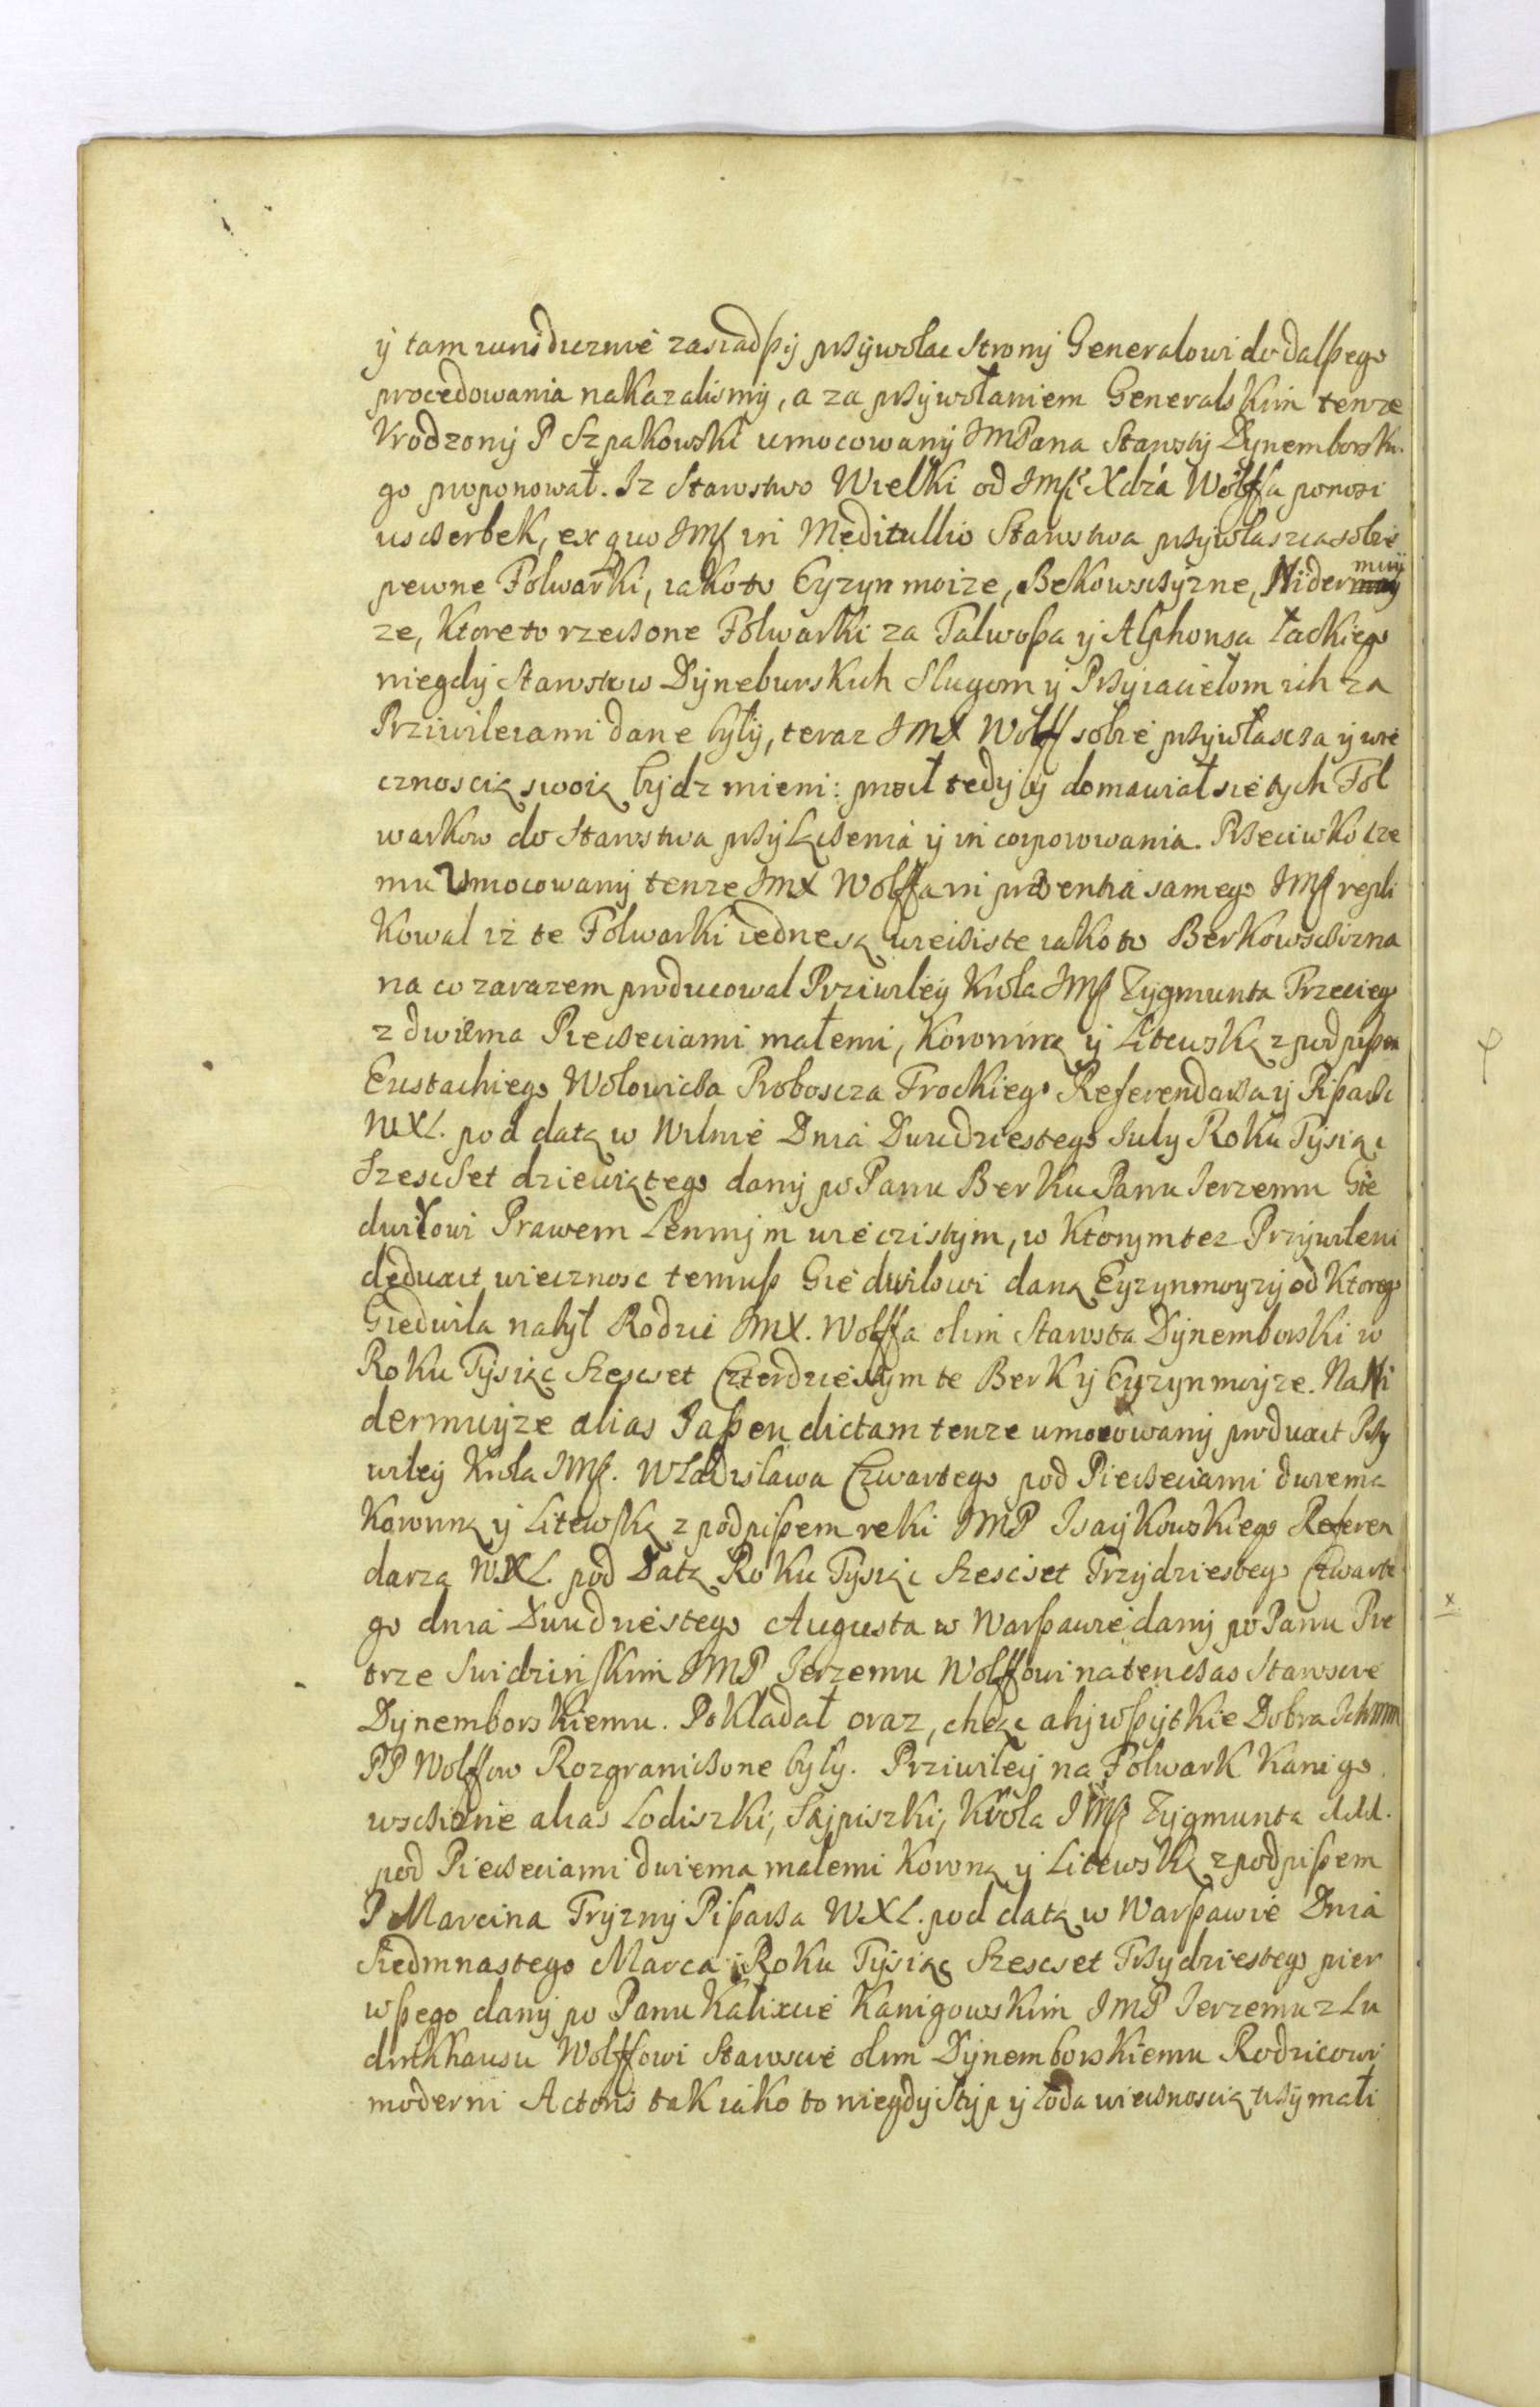 ÿ tam iurisdicznie zasiadßÿ przÿwołac Stronÿ Generałowi do dalßego
procedowania nakazalismÿ, a za przÿwołaniem Generalskim tenze
Vrodzonÿ P Szpakowski umocowanÿ JMPana Starostÿ Dynemborski
go proponował. Iz Starostwo Wielki od JMści Xdza Wolffa ponosi
usczerbek, ex quo JMść in Meditullio Starostwa przÿwłaszcza sobie
pewne Folwarki, iako to Eyzyn moize, Bekowsczyzne, Nidermuÿ
ze, Ktore to rzeczone Folwarki za Talwoßa ÿ Alphonsa Łackiego
niegdÿ Starostow Dÿneburskich Slugom ÿ Przÿiacielom ich za
Prziwileiami dane bÿłÿ, teraz JMX Wolff sobie przÿwłascza ÿ wie
cznoscią swoią bÿdz mieni: prosił tedÿ ÿ domawiał sie tych Fol
warkow do Starostwa przÿłączenia ÿ in corporowania. Przeciwko cze
mu Umocowanÿ tenze JMX Wolffa in præsentia samego JMści repli
kowal iż te Folwarki iedne są wiecziste iako to Berkowsczizna
na co zarazem producowal Prziwiley Krola JMści Zygmunta Trzeciego
z dwiema Pieczeciami małemi, Koronną ÿ Litewską z podpisem
Eustachiego Wołowicza Proboscza Trockiego Referendarza ÿ Pißarza
WXL. pod datą w Wilnie Dnia Dwudziestego July Roku Tÿsiąc
Szescset dziewiątego danÿ po Panu Berku Panu Ierzemu Gie
dwiłowi Prawem Lennÿm wieczistÿm, w Ktorym tez Przÿwileiu
deduxit wiecznosc temuß Giedwilowi daną Eyzynmoyzÿ od Ktorego
Giedwila nabÿł Rodzic JMX. Wolffa olim Starosta Dÿnemborski w
Roku Tÿsiąc Szescset Czterdziestÿm te Berk ÿ Eyzynmoÿze. Na Ni
dermuiÿze alias Jaßen dictam tenze umocowanÿ produxit Przÿ
wileÿ Krola JMści. Władislawa Czwartego pod Pieczeciami dwiema
Koronną ÿ Litewską z podpißem reki JMP Isaÿkowskiego Referen
darza WXL. pod Datą Roku Tysiąc Szescset Trzÿdziestego Czwarte
go dnia Dwudziestego Augusta w Warßawie danÿ po Panu Pie
trze Swidzinskim JMP Ierzemu Wolffowi natenczas Staroscie
Dÿnemborskiemu. Pokładał oraz, chcąc abÿ wßÿtkie Dobra Ichmm
PP Wolffow Rozgraniczone bÿłÿ. Prziwileÿ na Folwark Kanigo
wscziznie alias Lodiszki, Sajpiszki, Krola JMści Zÿgmunta
pod Pieczeciami dwiema małemi Koronną ÿ Litewską z podpißem
P Marcina Trÿznÿ Pißarza WXL. pod datą w Warßawie Dnia
Siedmnastego Marca Roku Tÿsiąc Szescset Trzÿdziestego pier
wßego danÿ po Panu Kalixcie Kanigowskim JMP Ierzemu z Lu
dinkhausu Wolffowi Staroscie olim Dÿnemborskiemu Rodzicowi
moderni Actoris tak iako to niegdÿ Stÿp ÿ Loda wiecznoscią trzÿmali